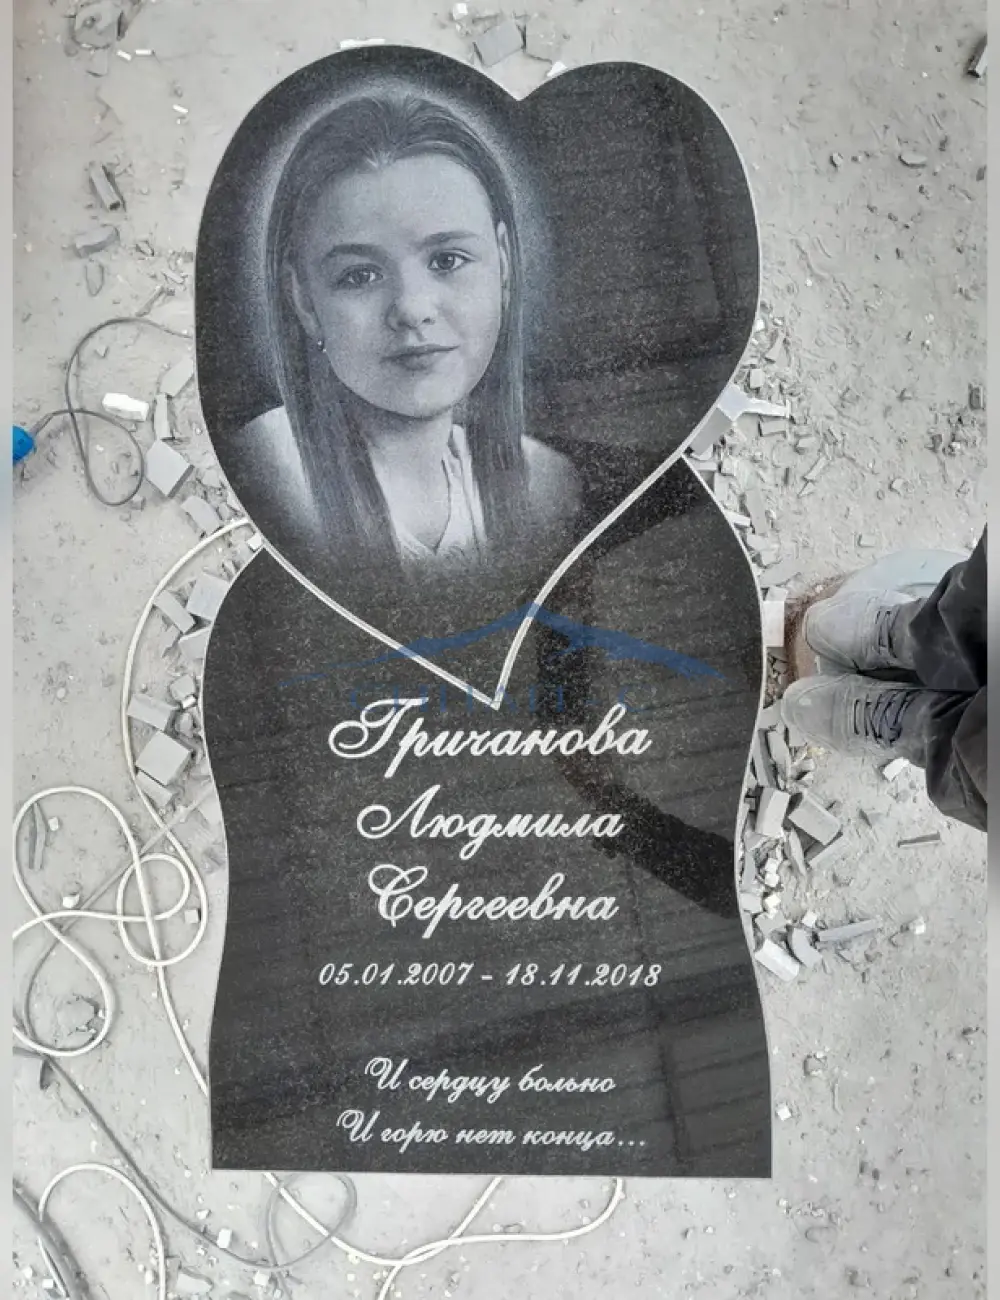 Гричанова
Людмила
Сергеевна
05.01.2007 - 18.11.2018
И сердцу больно
И горю нет конца...